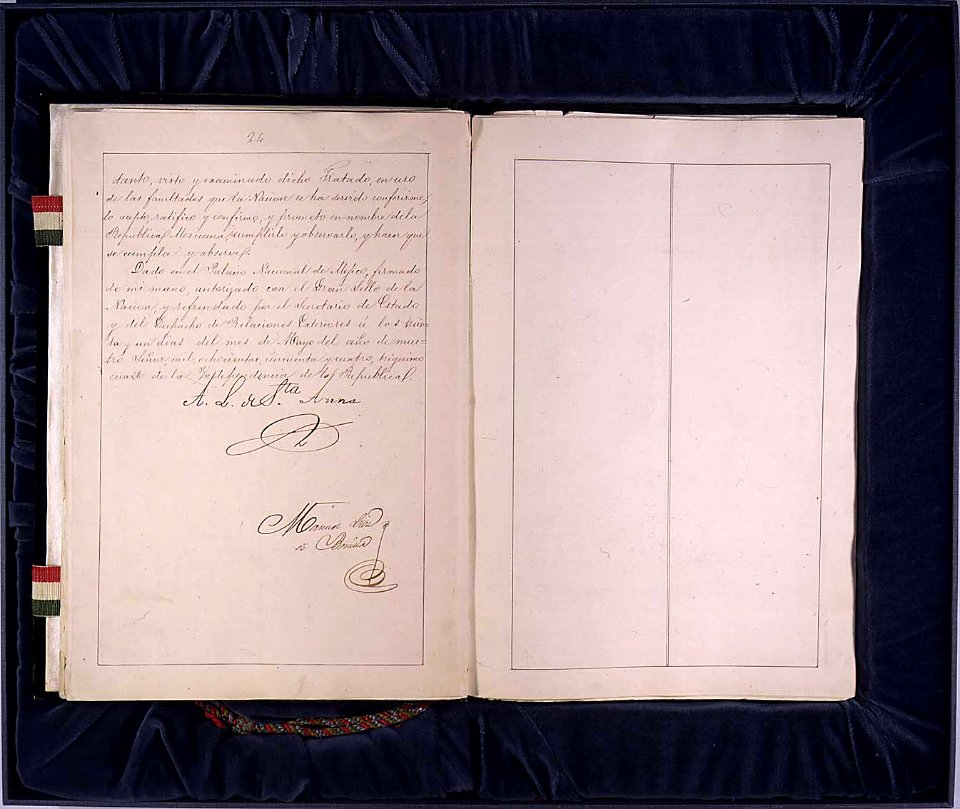 24.
tanto, visto y examinado dicho Tratado, en uso
de las facultades que la Nacion se ha servido conferirme,
lo acepto ratifico y confirmo, y prometo en nombre de la
Republica Mexicana, cumplirlo y observarlo, y hacer que
se cumpla y observe.
Dado en el Palacio Nacional de Mejico, firmado
de mi mano, autorizado con el Gran Sello de la
Nacion, y refrendado por el Secretario de Estado
y del Despacho de Relaciones Exteriores á los trein-
ta y un dias del mes de Mayo del año de nues-
tro Señor mil ochocientos cincuenta y cuatro, trigesimo
cuarto de la Independencia de la Republica.
A. L. de Sta. Anna
Manuel Diez
de Bonilla